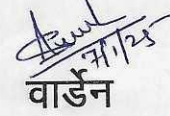 7/1/25
वार्डेन